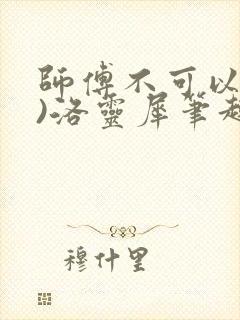 師傅不可以
)洛靈犀筆趣
穆什里